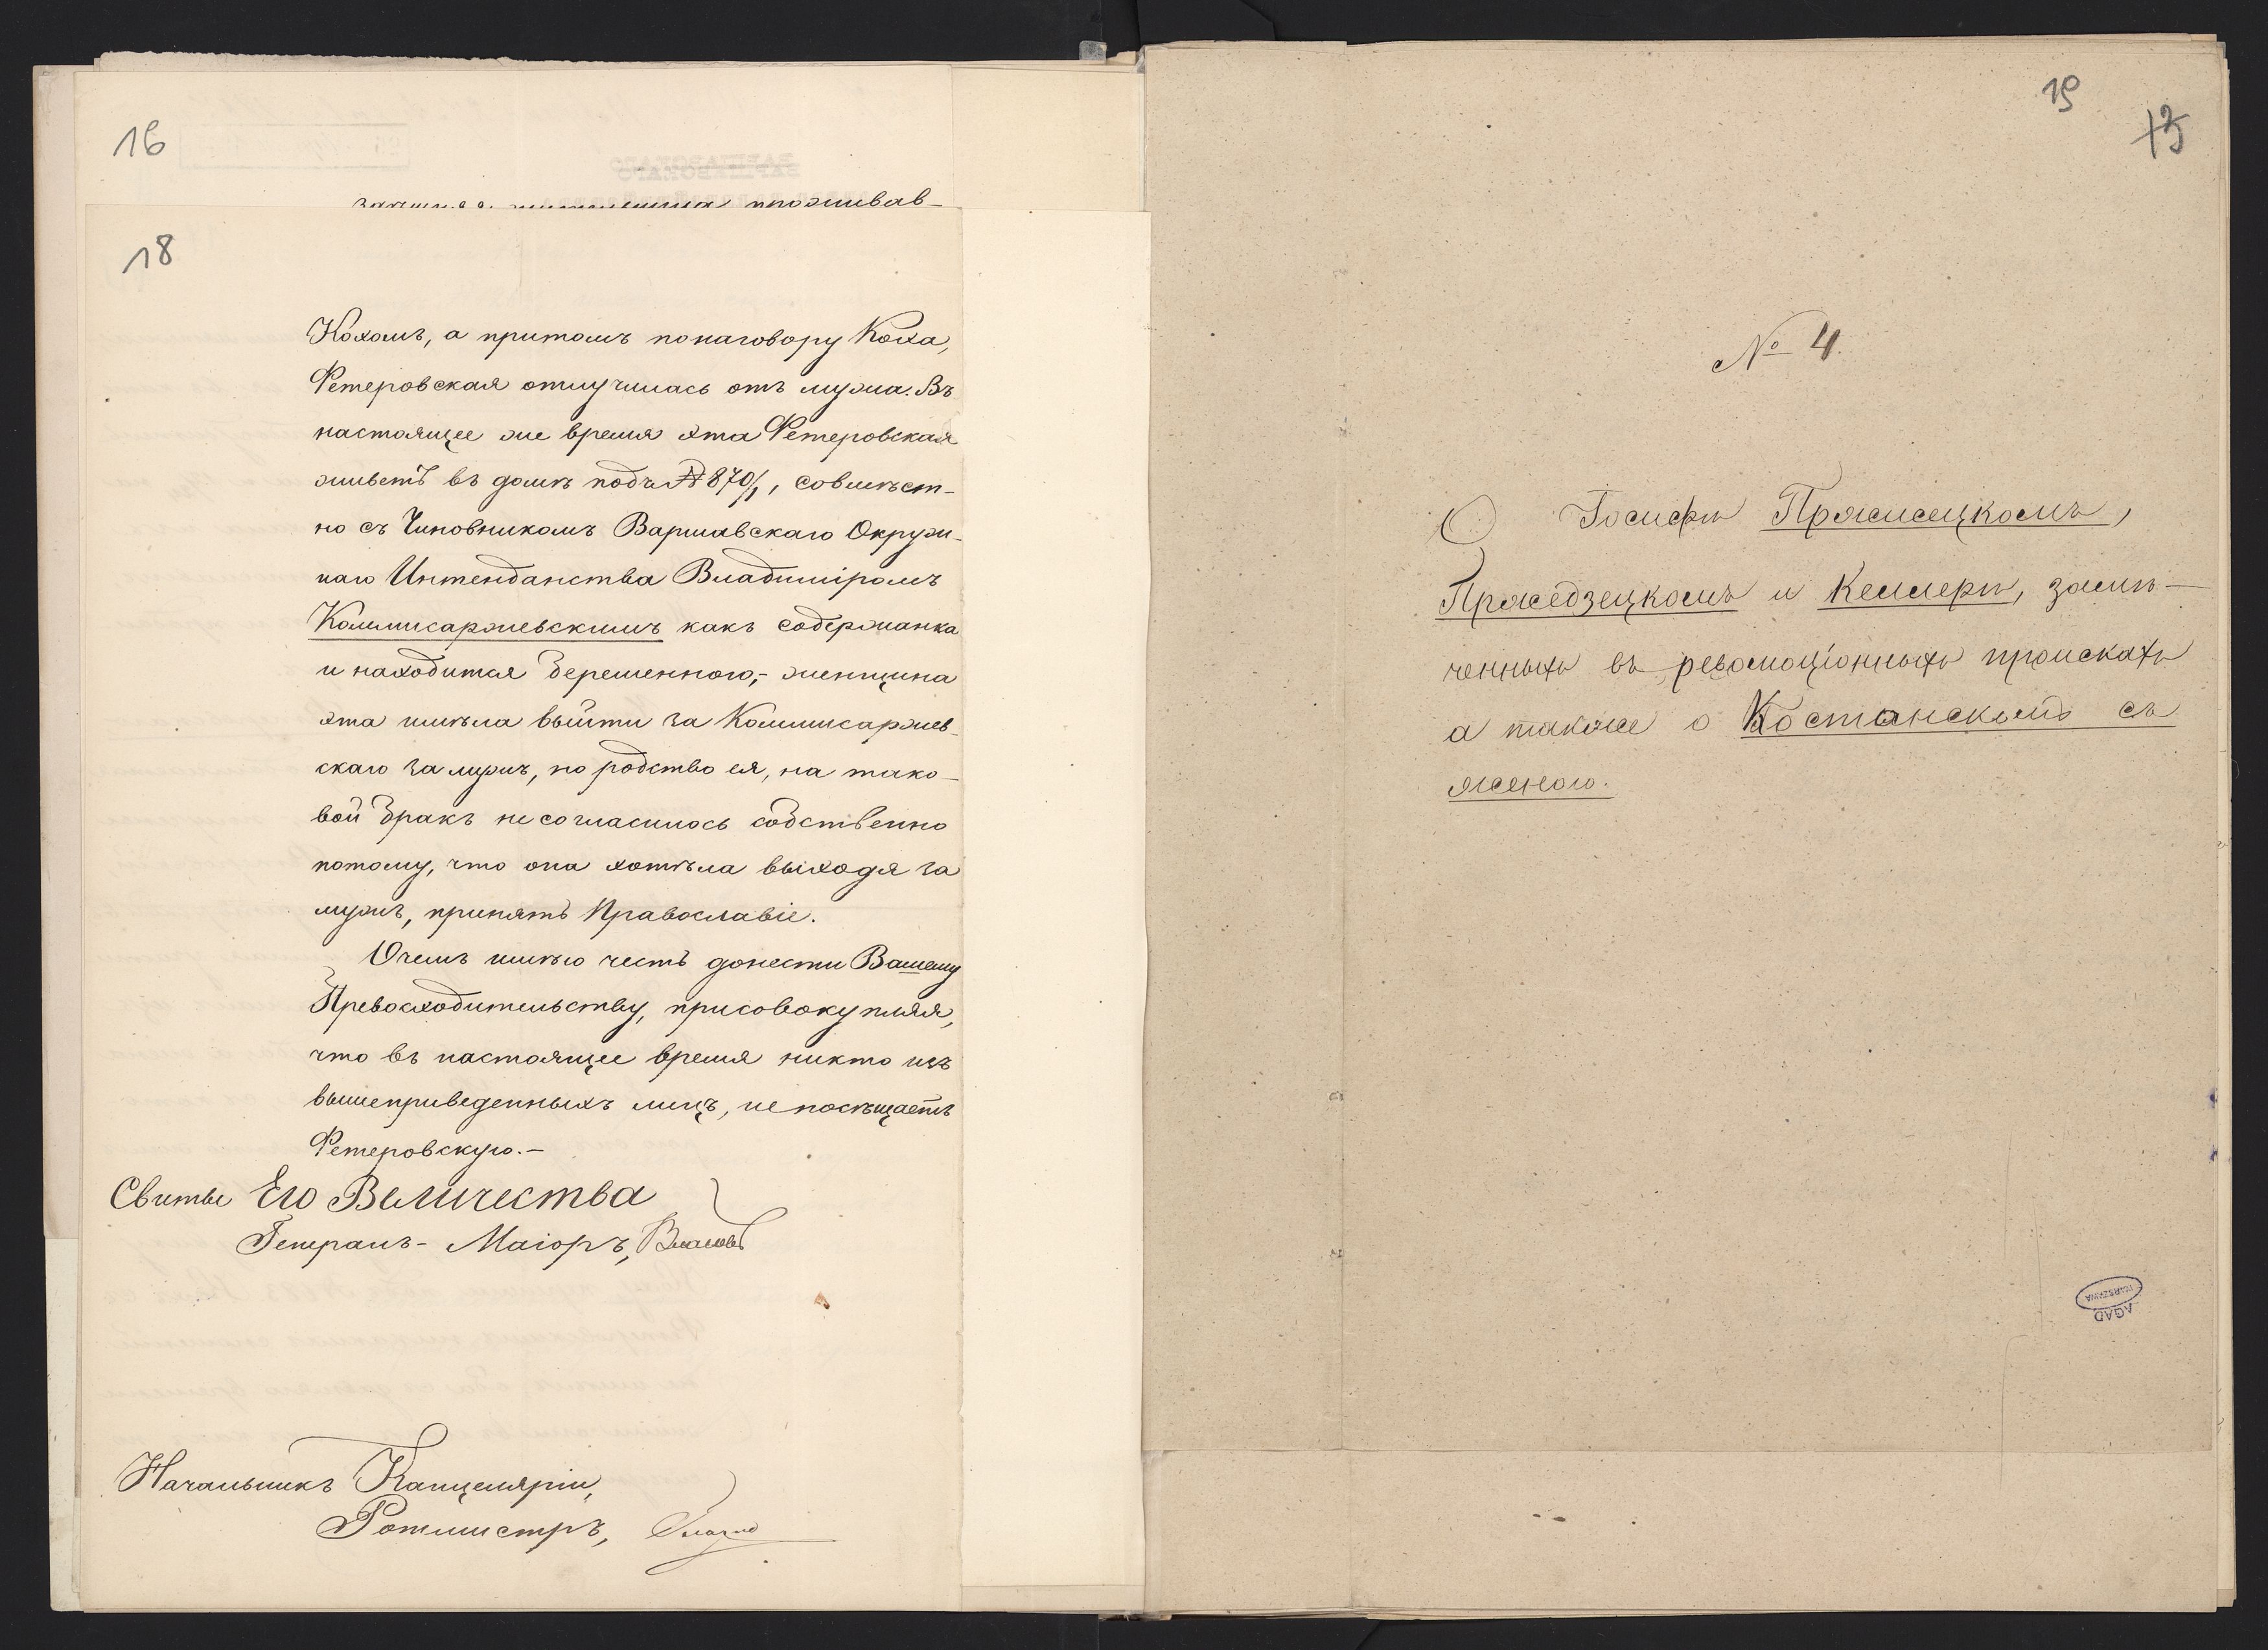 16
проживав-
18
Кохомъ, а притомъ по наговору Коха,
Фетеровская отлучилась отъ мужа. Въ
настоящее же время эта Фетеровская
живетъ въ домѣ подъ № 870/1, совмѣст-
но съ Чиновникомъ Варшавскаго Окруж-
наго Интенданства Владиміромъ
Коммисаржевскимъ какъ содержанка
и находится беременною,- женщина
эта имѣла выйти за Коммисаржев-
скаго за мужъ, но родство ея, на тако-
вой бракъ не согласилось собственно
потому, что она хотѣла выходя за
мужъ, принять Православіе.
О чемъ имѣю честь донести Вашему
Превосходительству, присовокупляя,
что въ настоящее время никто изъ
вышеприведенныхъ лицъ, не посѣщаетъ
Фетеровскую.-
Свиты Его Величества
Генералъ-Маіоръ, Власовъ
Начальникъ Канцеляріи,
Ротмистръ,
19
№ 4.
О Іосифѣ Пражмецкомъ,
Пражедзецкомъ и Келлерѣ, замѣ-
ченныхъ въ революціонныхъ проискахъ
а также о Костанскомъ съ
женою.
AGAD
WARSZAWA